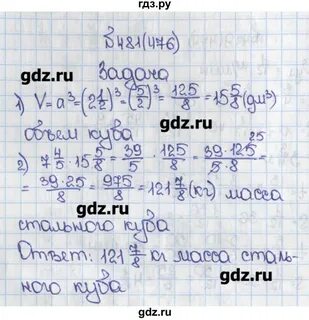 гдз.ру
№481(476)
gdz.ru gdz.ru
Задача
1) V=a³=(2 1/2)³=(5/2)³=125/8=15 5/8(дм³)
gdz.ru gdz.ru
объем куба
2) 7 4/5·15 5/8=39/5·125/8=39·125 25/5·8=
=39·25/8=975/8=121 7/8(кг) масса
gdz.ru gdz.ru
стального куба
Ответ: 121 7/8 кг масса сталь-
gdz.ru gdz.ru
ного куба